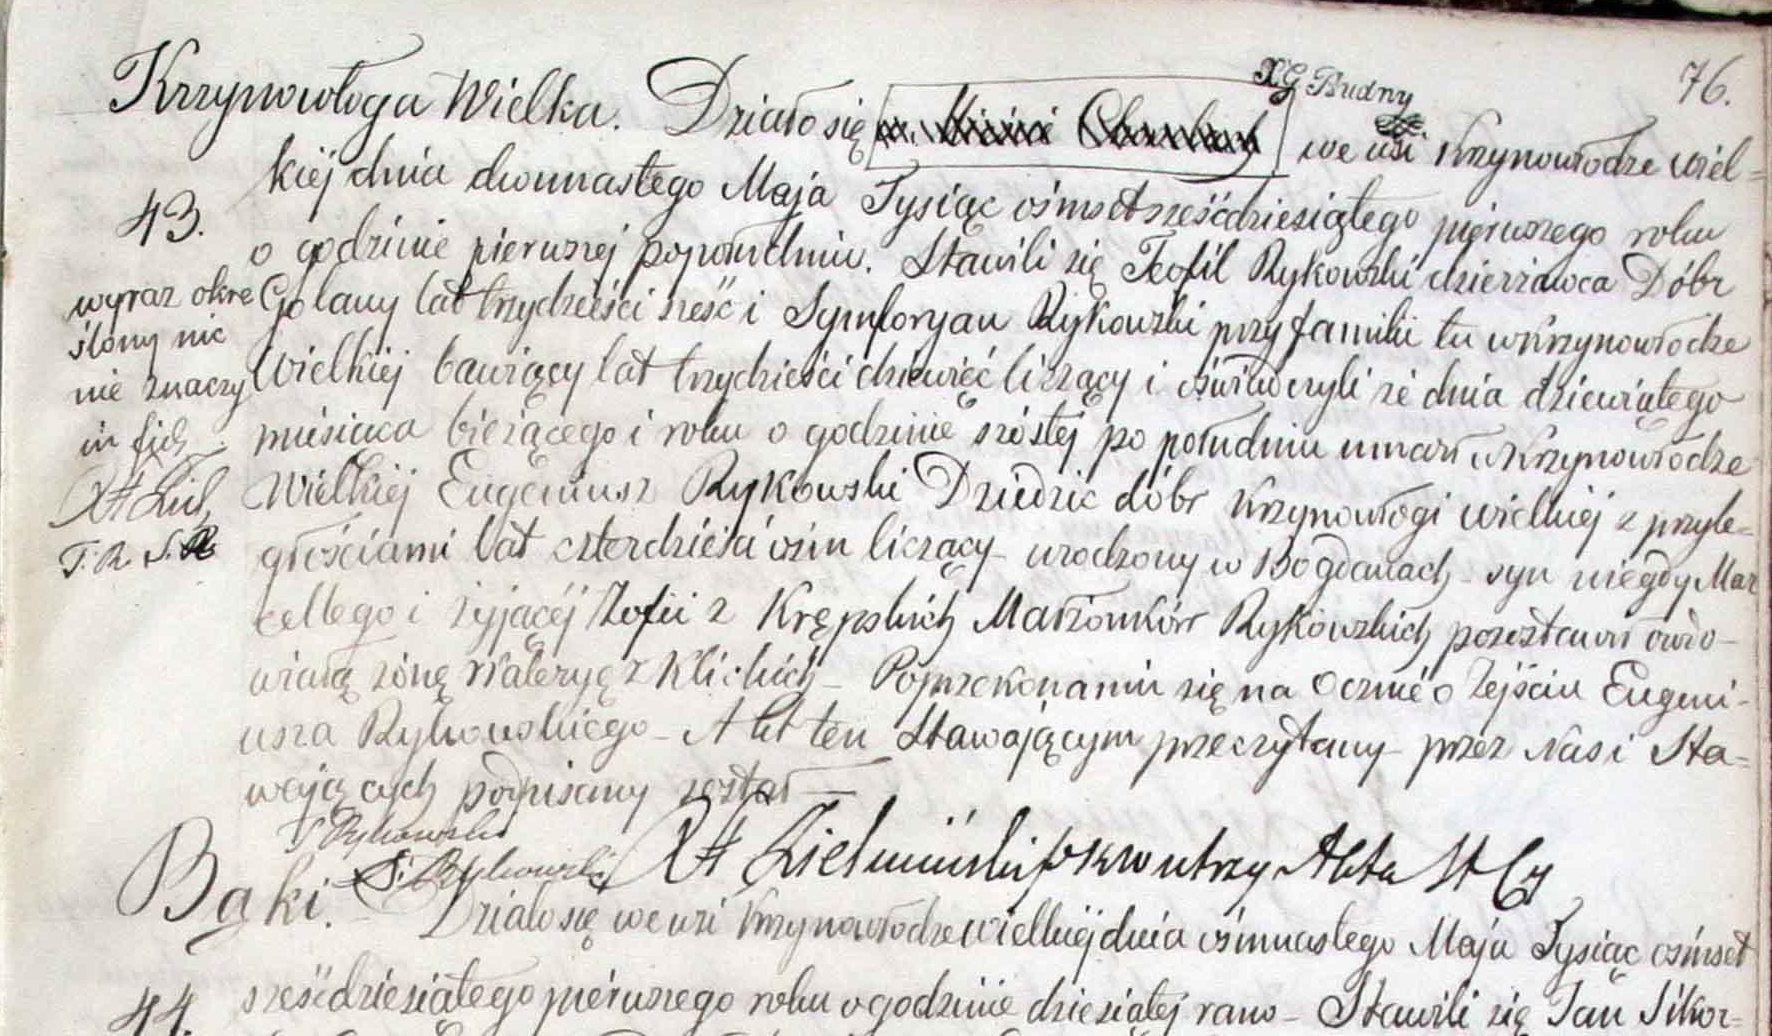 76.
X G Budny
Krzynowłoga Wielka. Działo się we wsi Krzynowłodze Wiel=
kiej dnia dwunastego Maja Tysiąc ośmset sześćdziesiątego pierwszego roku
43.
o godzinie pierwszej popołudniu. Stawili się Teofil Rykowski dzierżawca Dóbr
wyraz okre
ślony nic
nie znaczy
in fidz
Golany lat trzydzieści sześć i Symforyan Rykowski przy familii tu w Krzynowłodze
Wielkiej bawiący lat trzydzieści dziewięć liczący i oświadczyli że dnia dziewiątego
miesiąca bieżącego i roku o godzinie szóstej po południu umarł w Krzynowłodze
Wielkiej Eugeniusz Rykowski Dziedzic dóbr Krzynowłogi wielkiej z przyle=
T. R. S. R
głościami lat czterdzieści ośm liczący - urodzony w Bogdanach - syn niegdy Mar
cellego i żyjącéj Zofii z Krępskich Małżonków Rykowskich pozostawił owdo-
wiałą żonę Waleryę z Klickich - Po przekonaniu się na Ocznie o Zejściu Eugeni-
usza Rykowskiego - Akt ten Stawającym przeczytany - przez Nas i Sta=
wających podpisany został -
T Rykowski
S. Rykowski
Bąki. Działo się we wsi Krzynowłodze wielkiéj dnia ośmnastego Maja Tysiąc ośmset
44.
sześćdziesiątego pierwszego roku o godzinie dziesiątej rano - Stawili się Jan Sikor-